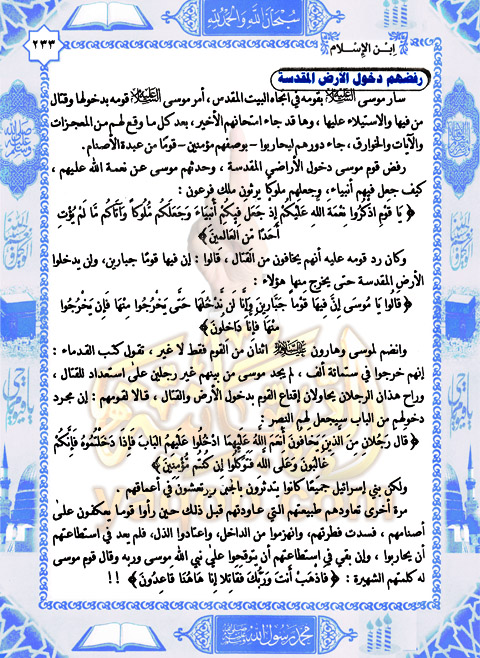 سُبْحَانَ اللَّهِ وَالْحَمْدُ لِلَّهِ
٢٣٣
اِبْن الإِسْلَام
رفضهم دخول الأرض المقدسة
سار موسى عليه السلام بقومه في اتجاه البيت المقدس ، أمر موسى عليه السلام قومه بدخولها وقتال
من فيها والاستيلاء عليها ، وها قد جاء امتحانهم الأخير ، بعد كل ما وقع لهم من المعجزات
والآيات والخوارق ، جاء دورهم ليحاربوا – بوصفهم مؤمنين – قومًا من عبدة الأصنام .
رفض قوم موسى دخول الأراضي المقدسة ، وحدثهم موسى عن نعمة الله عليهم ،
كيف جعل فيهم أنبياء ، وجعلهم ملوكًا يرثون ملك فرعون :
﴿ يَا قَوْمِ اذْكُرُوا نِعْمَةَ اللهِ عَلَيْكُمْ إِذْ جَعَلَ فِيكُمْ أَنْبِيَاءَ وَجَعَلَكُم مُّلُوكاً وَآتَاكُم مَّا لَمْ يُؤْتِ
أَحَدًا مِّن الْعَالَمِينَ ﴾
وكان رد قومه عليه أنهم يخافون من القتال ، قالوا : إن فيها قومًا جبارين، ولن يدخلوا
الأرض المقدسة حتى يخرج منها هؤلاء :
﴿ قَالُوا يَا مُوسَى إِنَّ فِيهَا قَوْماً جَبَّارِينَ وَإِنَّا لَن نَّدْخُلَهَا حَتَّى يَخْرُجُوا مِنْهَا فَإِن يَخْرُجُوا
مِنْهَا فَإِنَّا دَاخِلُونَ ﴾
وانضم لموسى وهارون عليهما السلام اثنان من القوم فقط لا غير ، تقول كتب القدماء :
إنهم خرجوا في ستمائة ألف ، لم يجد موسى من بينهم غير رجلين على استعداد للقتال ،
وراح هذان الرجلان يحاولان إقناع القوم بدخول الأرض والقتال ، قالا لقومهم : إن مجرد
دخولهم من الباب سيجعل لهم النصر :
﴿ قَالَ رَجُلَانِ مِنَ الَّذِينَ يَخَافُونَ أَنْعَمَ اللهُ عَلَيْهِمَا ادْخُلُوا عَلَيْهِمُ الْبَابَ فَإِذَا دَخَلْتُمُوهُ فَإِنَّكُمْ
غَالِبُونَ وَعَلَى اللَّهِ فَتَوَكَّلُوا إِن كُنتُم مُّؤْمِنِينَ ﴾
ولكن بني إسرائيل جميعًا كانوا يتدثرون بالجبن ويرتعشون في أعماقهم
مرة أخرى تعاودهم طبيعتهم التي عاودتهم قبل ذلك حين رأوا قوما يعكفون على
أصنامهم ، فسدت فطرتهم، وانهزموا من الداخل، واعتادوا الذل، فلم يعد في استطاعتهم
أن يحاربوا ، وإن بقي في استطاعتهم أن يتوقحوا على نبي الله موسى وربه وقال قوم موسى
له كلمتهم الشهيرة : ﴿ فَاذْهَبْ أَنتَ وَرَبُّكَ فَقَاتِلَا إِنَّا هَاهُنَا قَاعِدُونَ ﴾ !!
محمد رسول الله